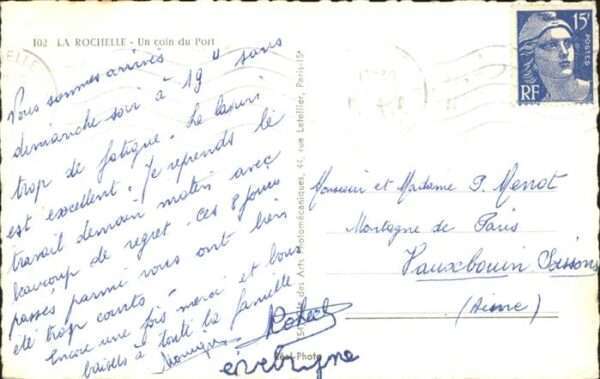 102 LA ROCHELLE - Un coin du Port
Nous sommes arrivés
dimanche soir à 19 H sans
trop de fatigue. Le
est excellent. Je reprends le
travail demain matin avec
beaucoup de regret. Ces 8 jours
passés parmi vous ont bien
été trop courts.
Encore une fois merci et bons
baisers à toute la famille
Monique
Sté des Arts Photomécaniques, 44, rue Letellier, Paris-15e
Réel-Photo
15F
POSTES
RF
Monsieur et Madame P. Menot
Montagne de Paris
Vauxbouin Soissons
(Aisne)